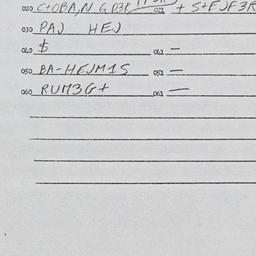 020 C+OBA,N G D3R 021 + S+FJF3R
030 PAJ HEJ
040 $ 041 —
050 BA-HEJM1S 051 —
060 RUM3G+ 061 —